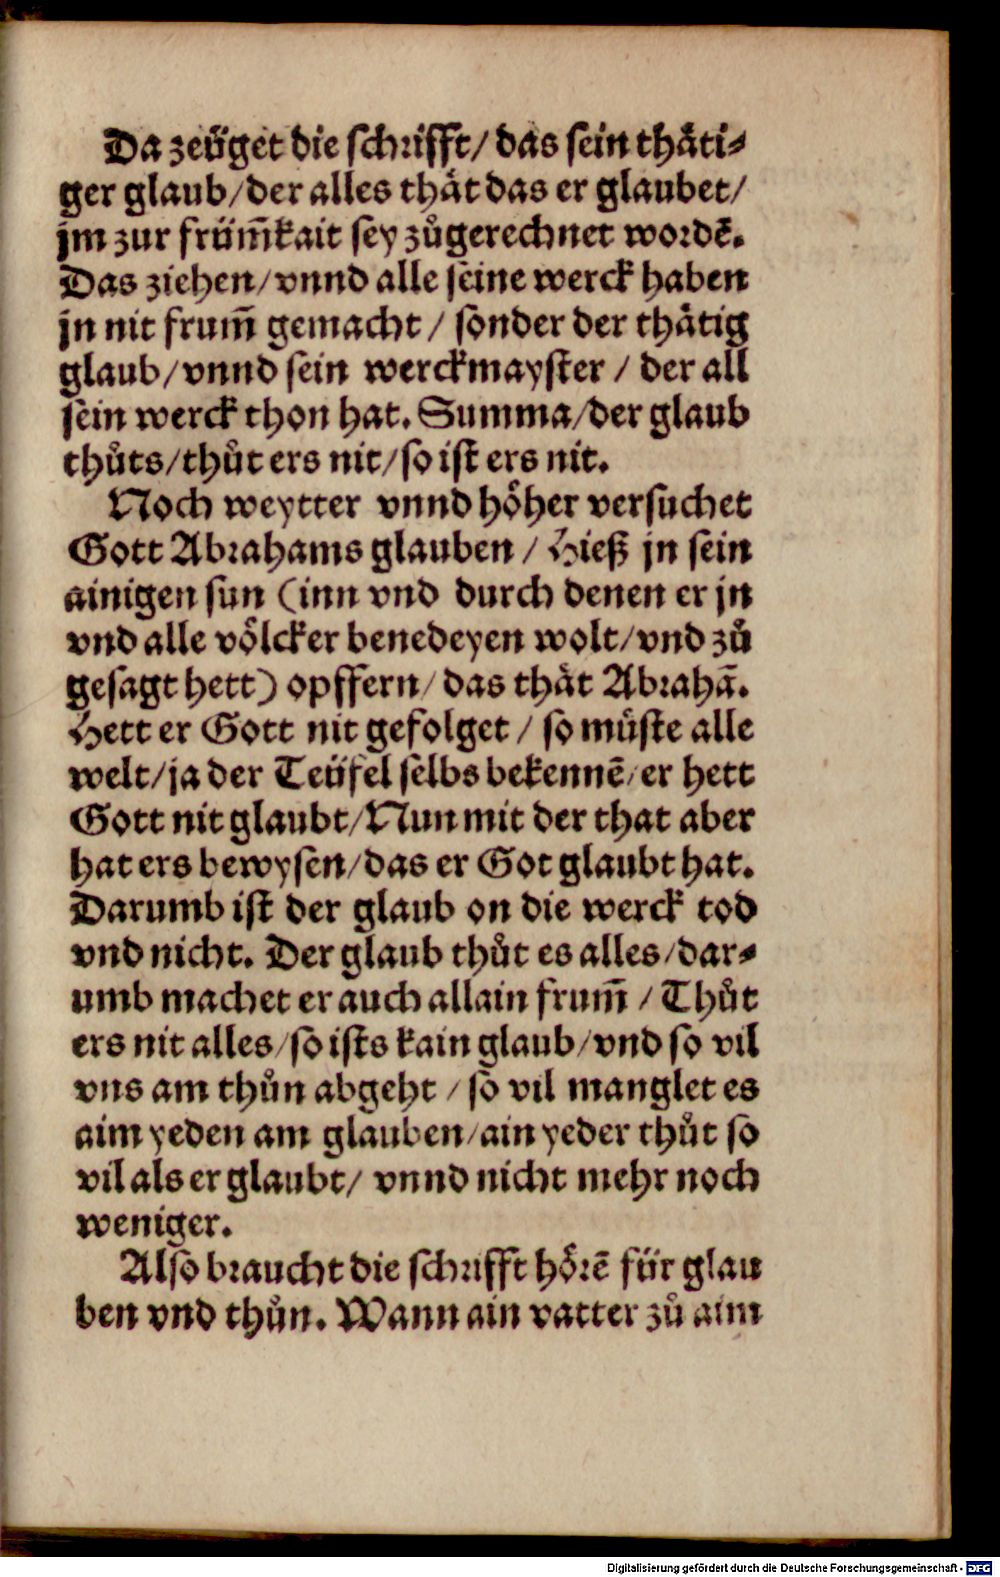 Da zeüget die schrifft/ das sein thäti-
ger glaub/der alles thät das er glaubet/
jm zur früm̃kait sey zůgerechnet wordẽ.
Das ziehen/vnnd alle seine werck haben
jn nit frum̃ gemacht / sonder der thätig
glaub/vnnd sein werckmayster / der all
sein werck thon hat. Summa/der glaub
thůts/thůt ers nit/so ist ers nit.
Noch weytter vnnd höher versuchet
Gott Abrahams glauben / Hieß jn sein
ainigen sun (inn vnd durch denen er jn
vnd alle völcker benedeyen wolt/vnd zů
gesagt hett) opffern/das thät Abrahã.
Hett er Gott nit gefolget / so müste alle
welt/ja der Teüfel selbs bekennẽ/er hett
Gott nit glaubt/Nun mit der that aber
hat ers bewysen/das er Got glaubt hat.
Darumb ist der glaub on die werck tod
vnd nicht. Der glaub thůt es alles/dar-
umb machet er auch allain frum̃ / Thůt
ers nit alles/so ists kain glaub/vnd so vil
vns am thůn abgeht / so vil manglet es
aim yeden am glauben/ain yeder thůt so
vil als er glaubt/ vnnd nicht mehr noch
weniger.
Also braucht die schrifft hörẽ für glau
ben vnd thůn. Wann ain vatter zů aim
Digitalisierung gefördert durch die Deutsche Forschungsgemeinschaft - DFG